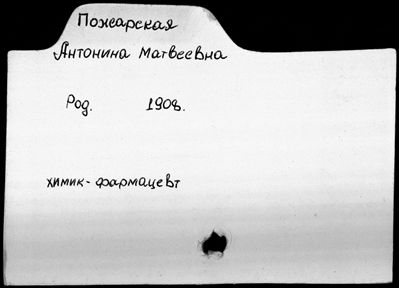 Пожарская
Антонина Матвеевна
Род. 1908.
химик-фармацевт